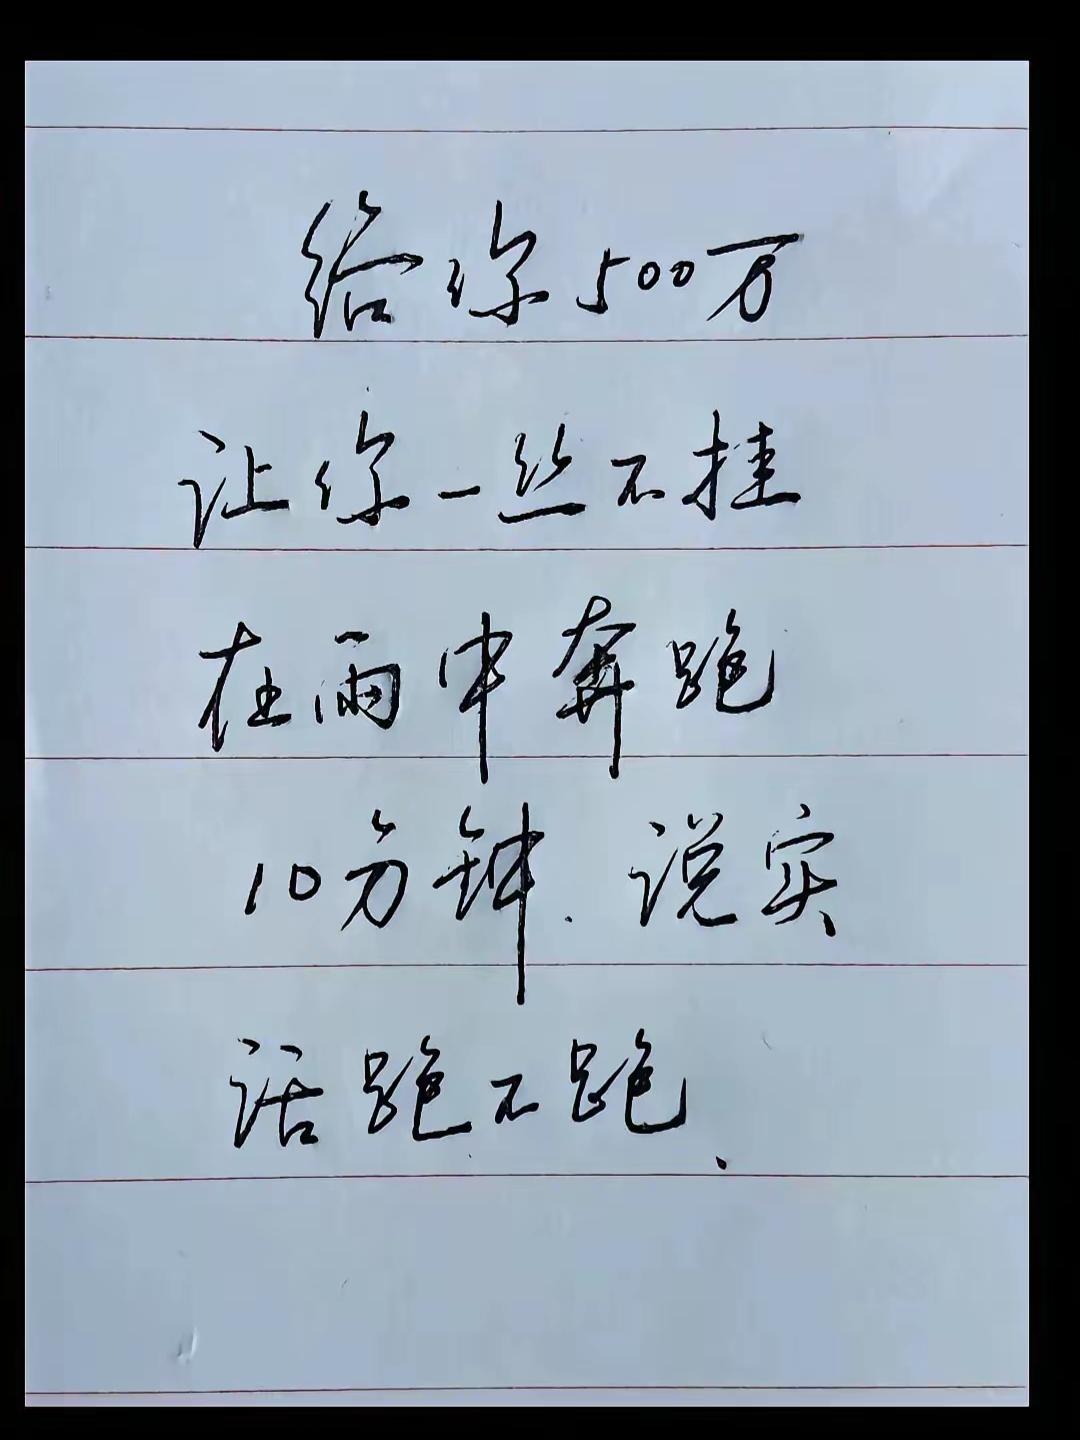 给你500万
让你一丝不挂
在雨中奔跑
10分钟.说实
话跑不跑.